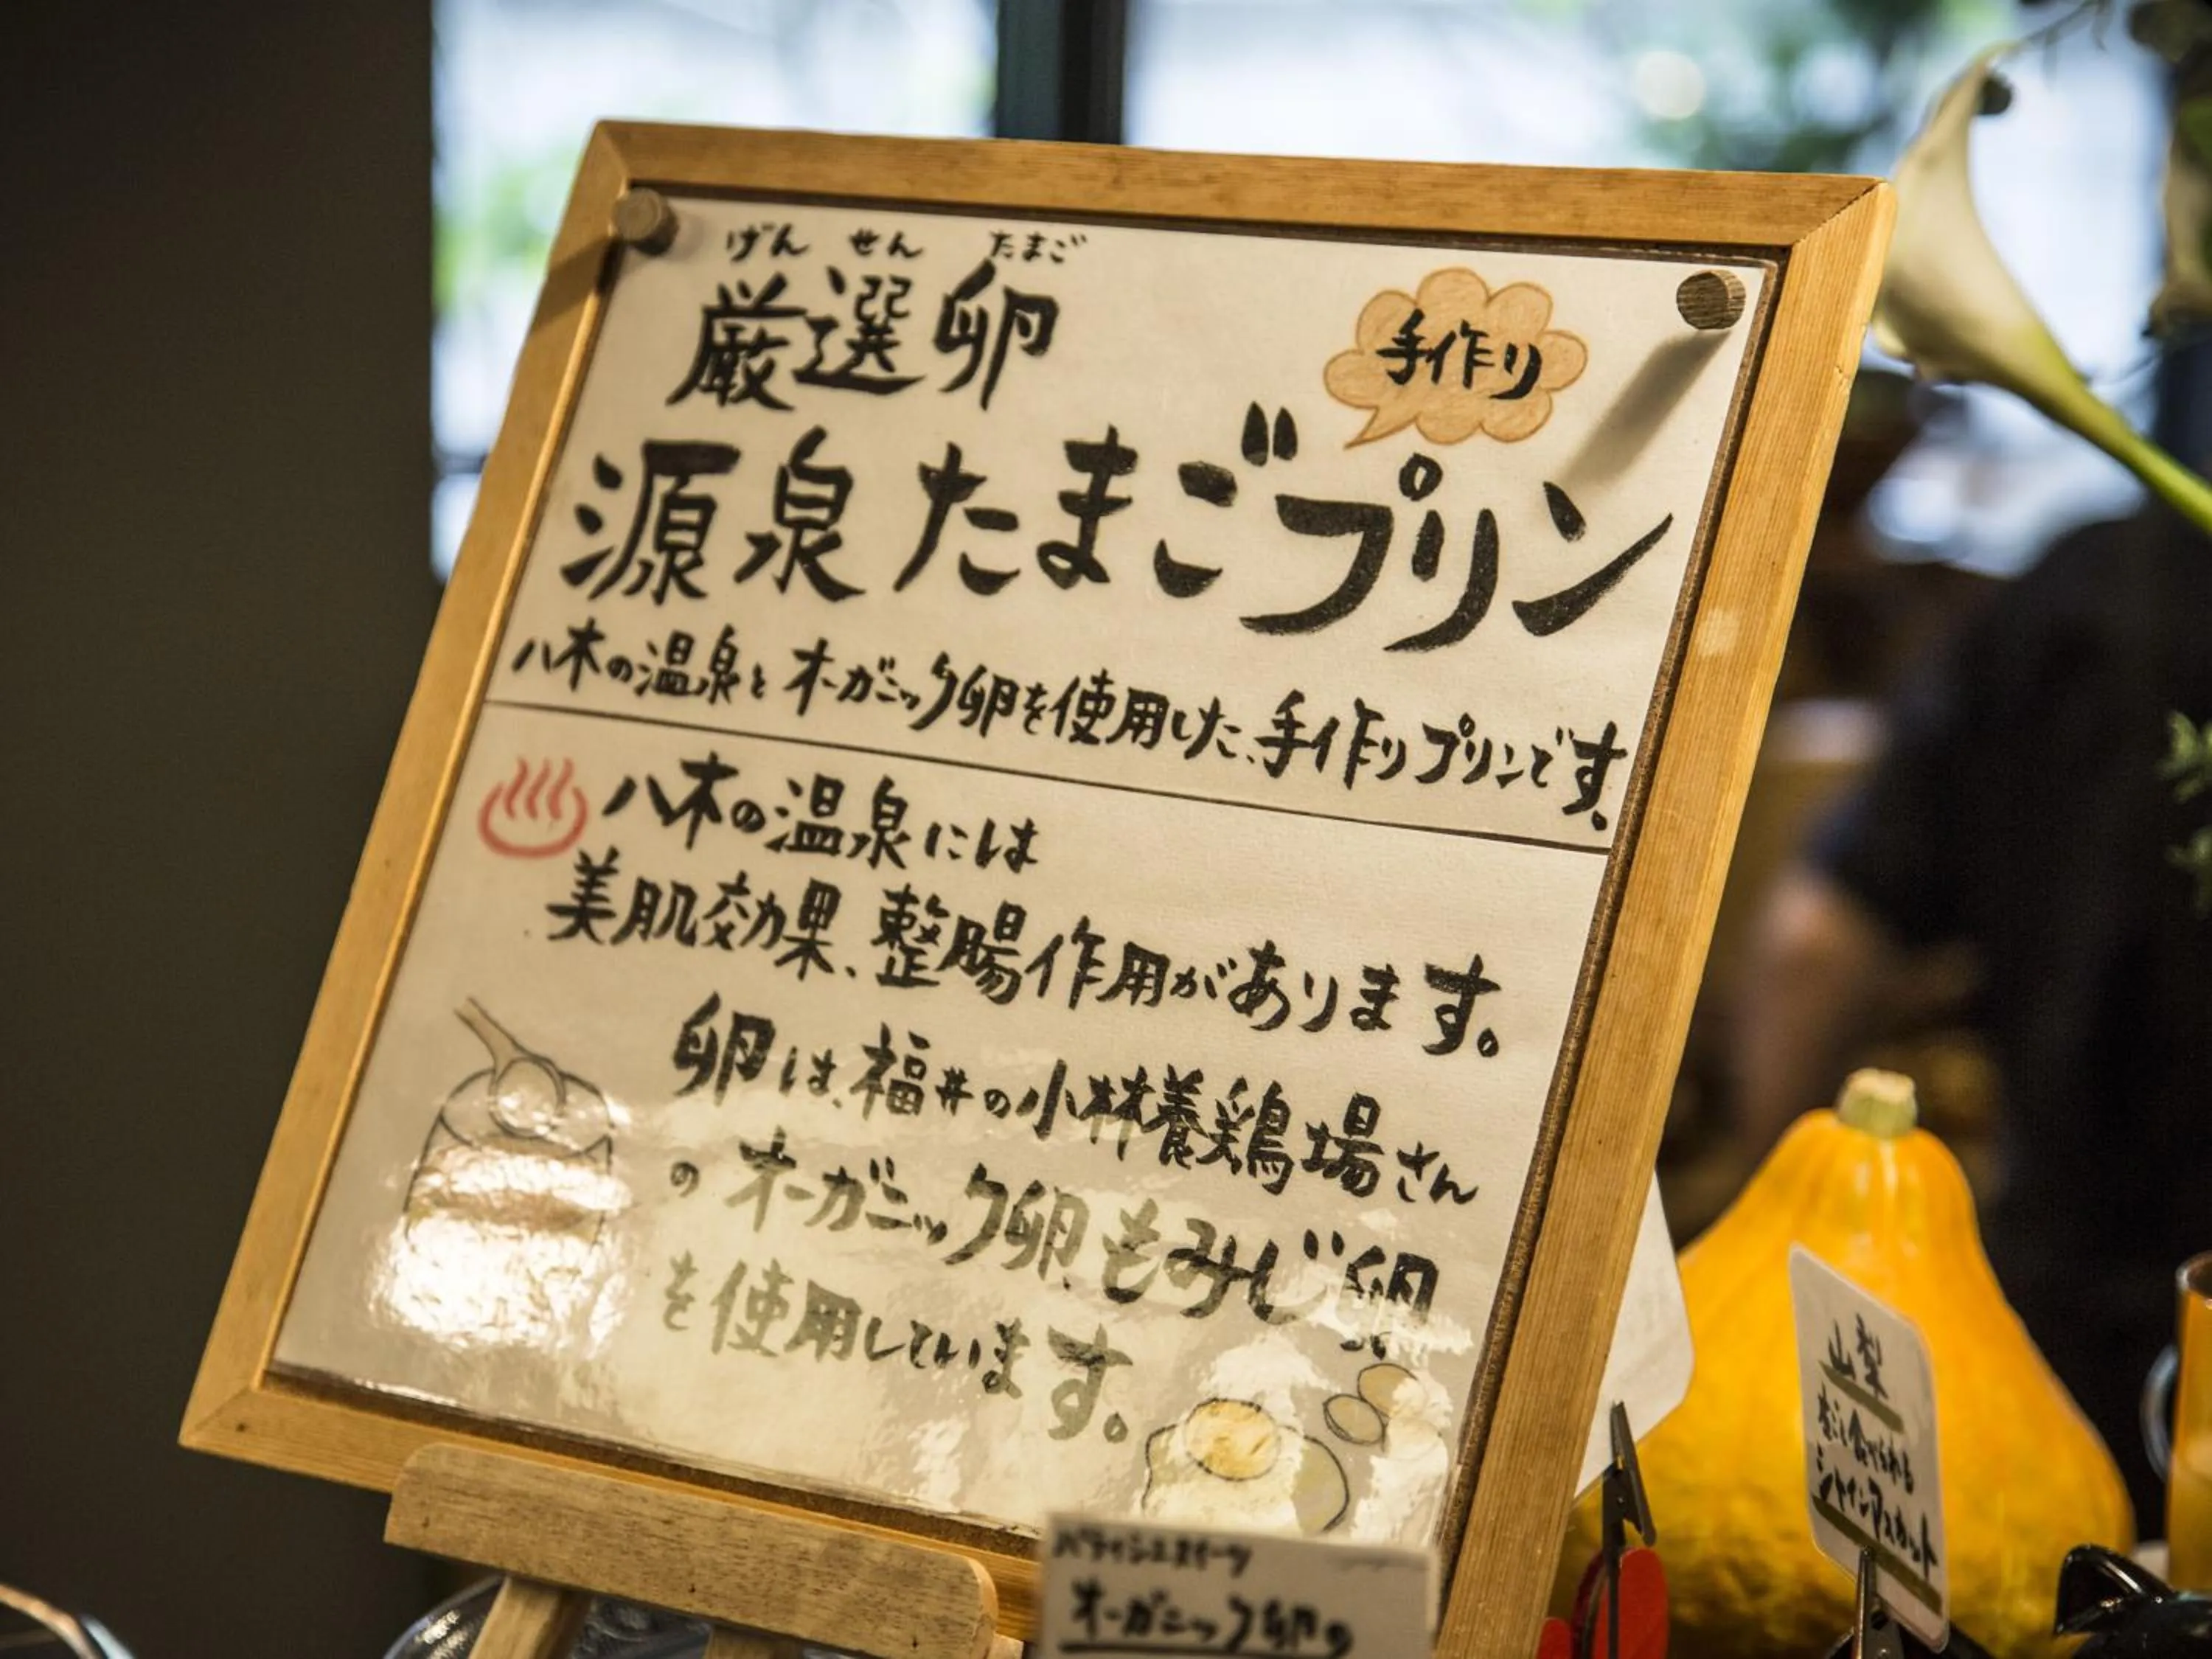 げん せん たまご
厳選卵
手作り
源泉たまごプリン
八木の温泉とオーガニック卵を使用した、手作りプリンです。
八木の温泉には
美肌効果、整腸作用があります。
卵は、福井の小林養鶏場さん
のオーガニック卵、もみじ卵
を使用しています。
パティシエスイーツ
オーガニック卵の
山梨
シャインマスカット